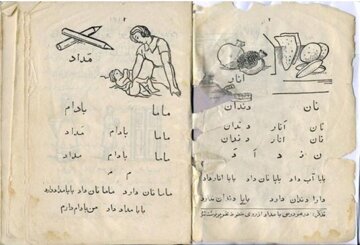 ۲
انار
نان دندان
نان انار دندان
نان انار دندان
بابا آب داد بابا نان داد بابا انار داد
دارا دندان دارد بابا دندان ندارد
مداد
ماما بادام
ماما بادام مداد
ماما بادام مداد
م م
ماما نان دارد ماما نان داد
ماما مداد داد من بادام دارم